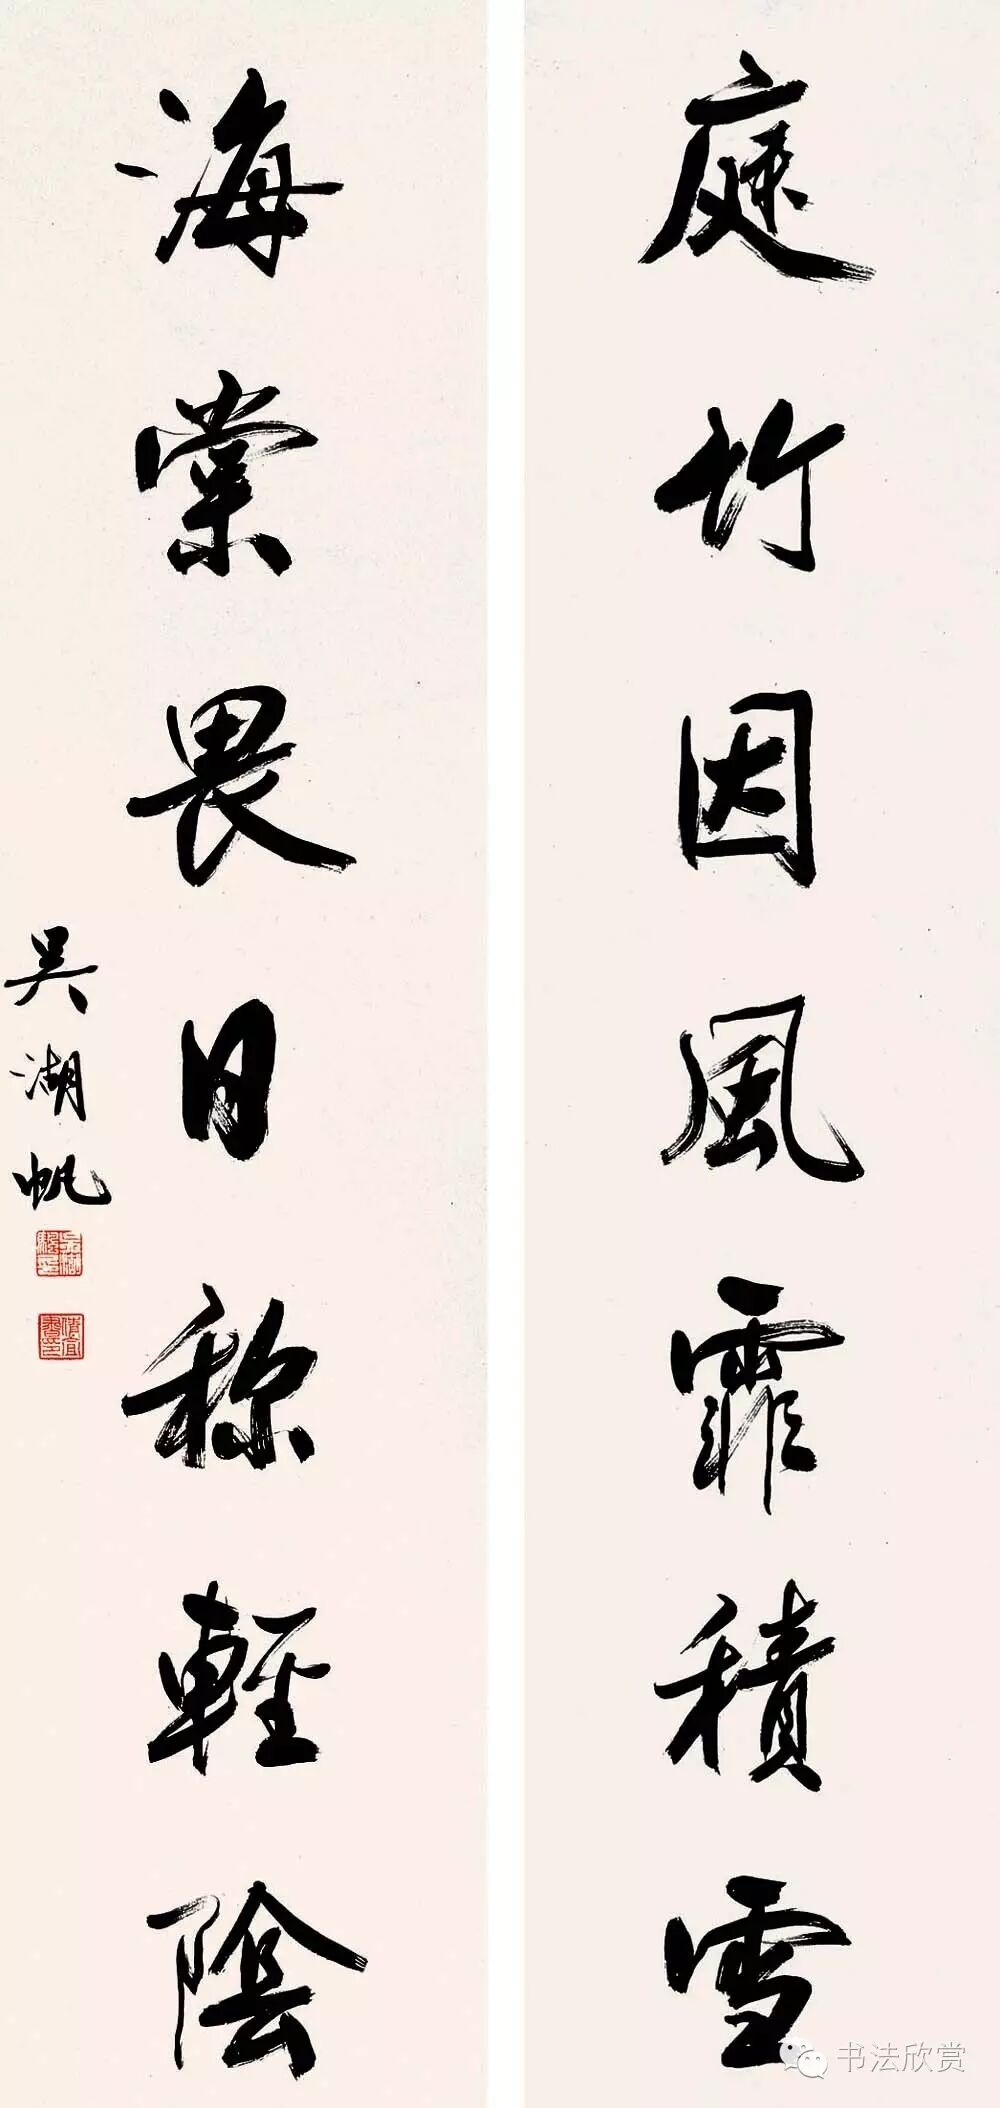 庭竹因風霏積雪
海棠畏日称輕陰
吳湖帆
书法欣赏